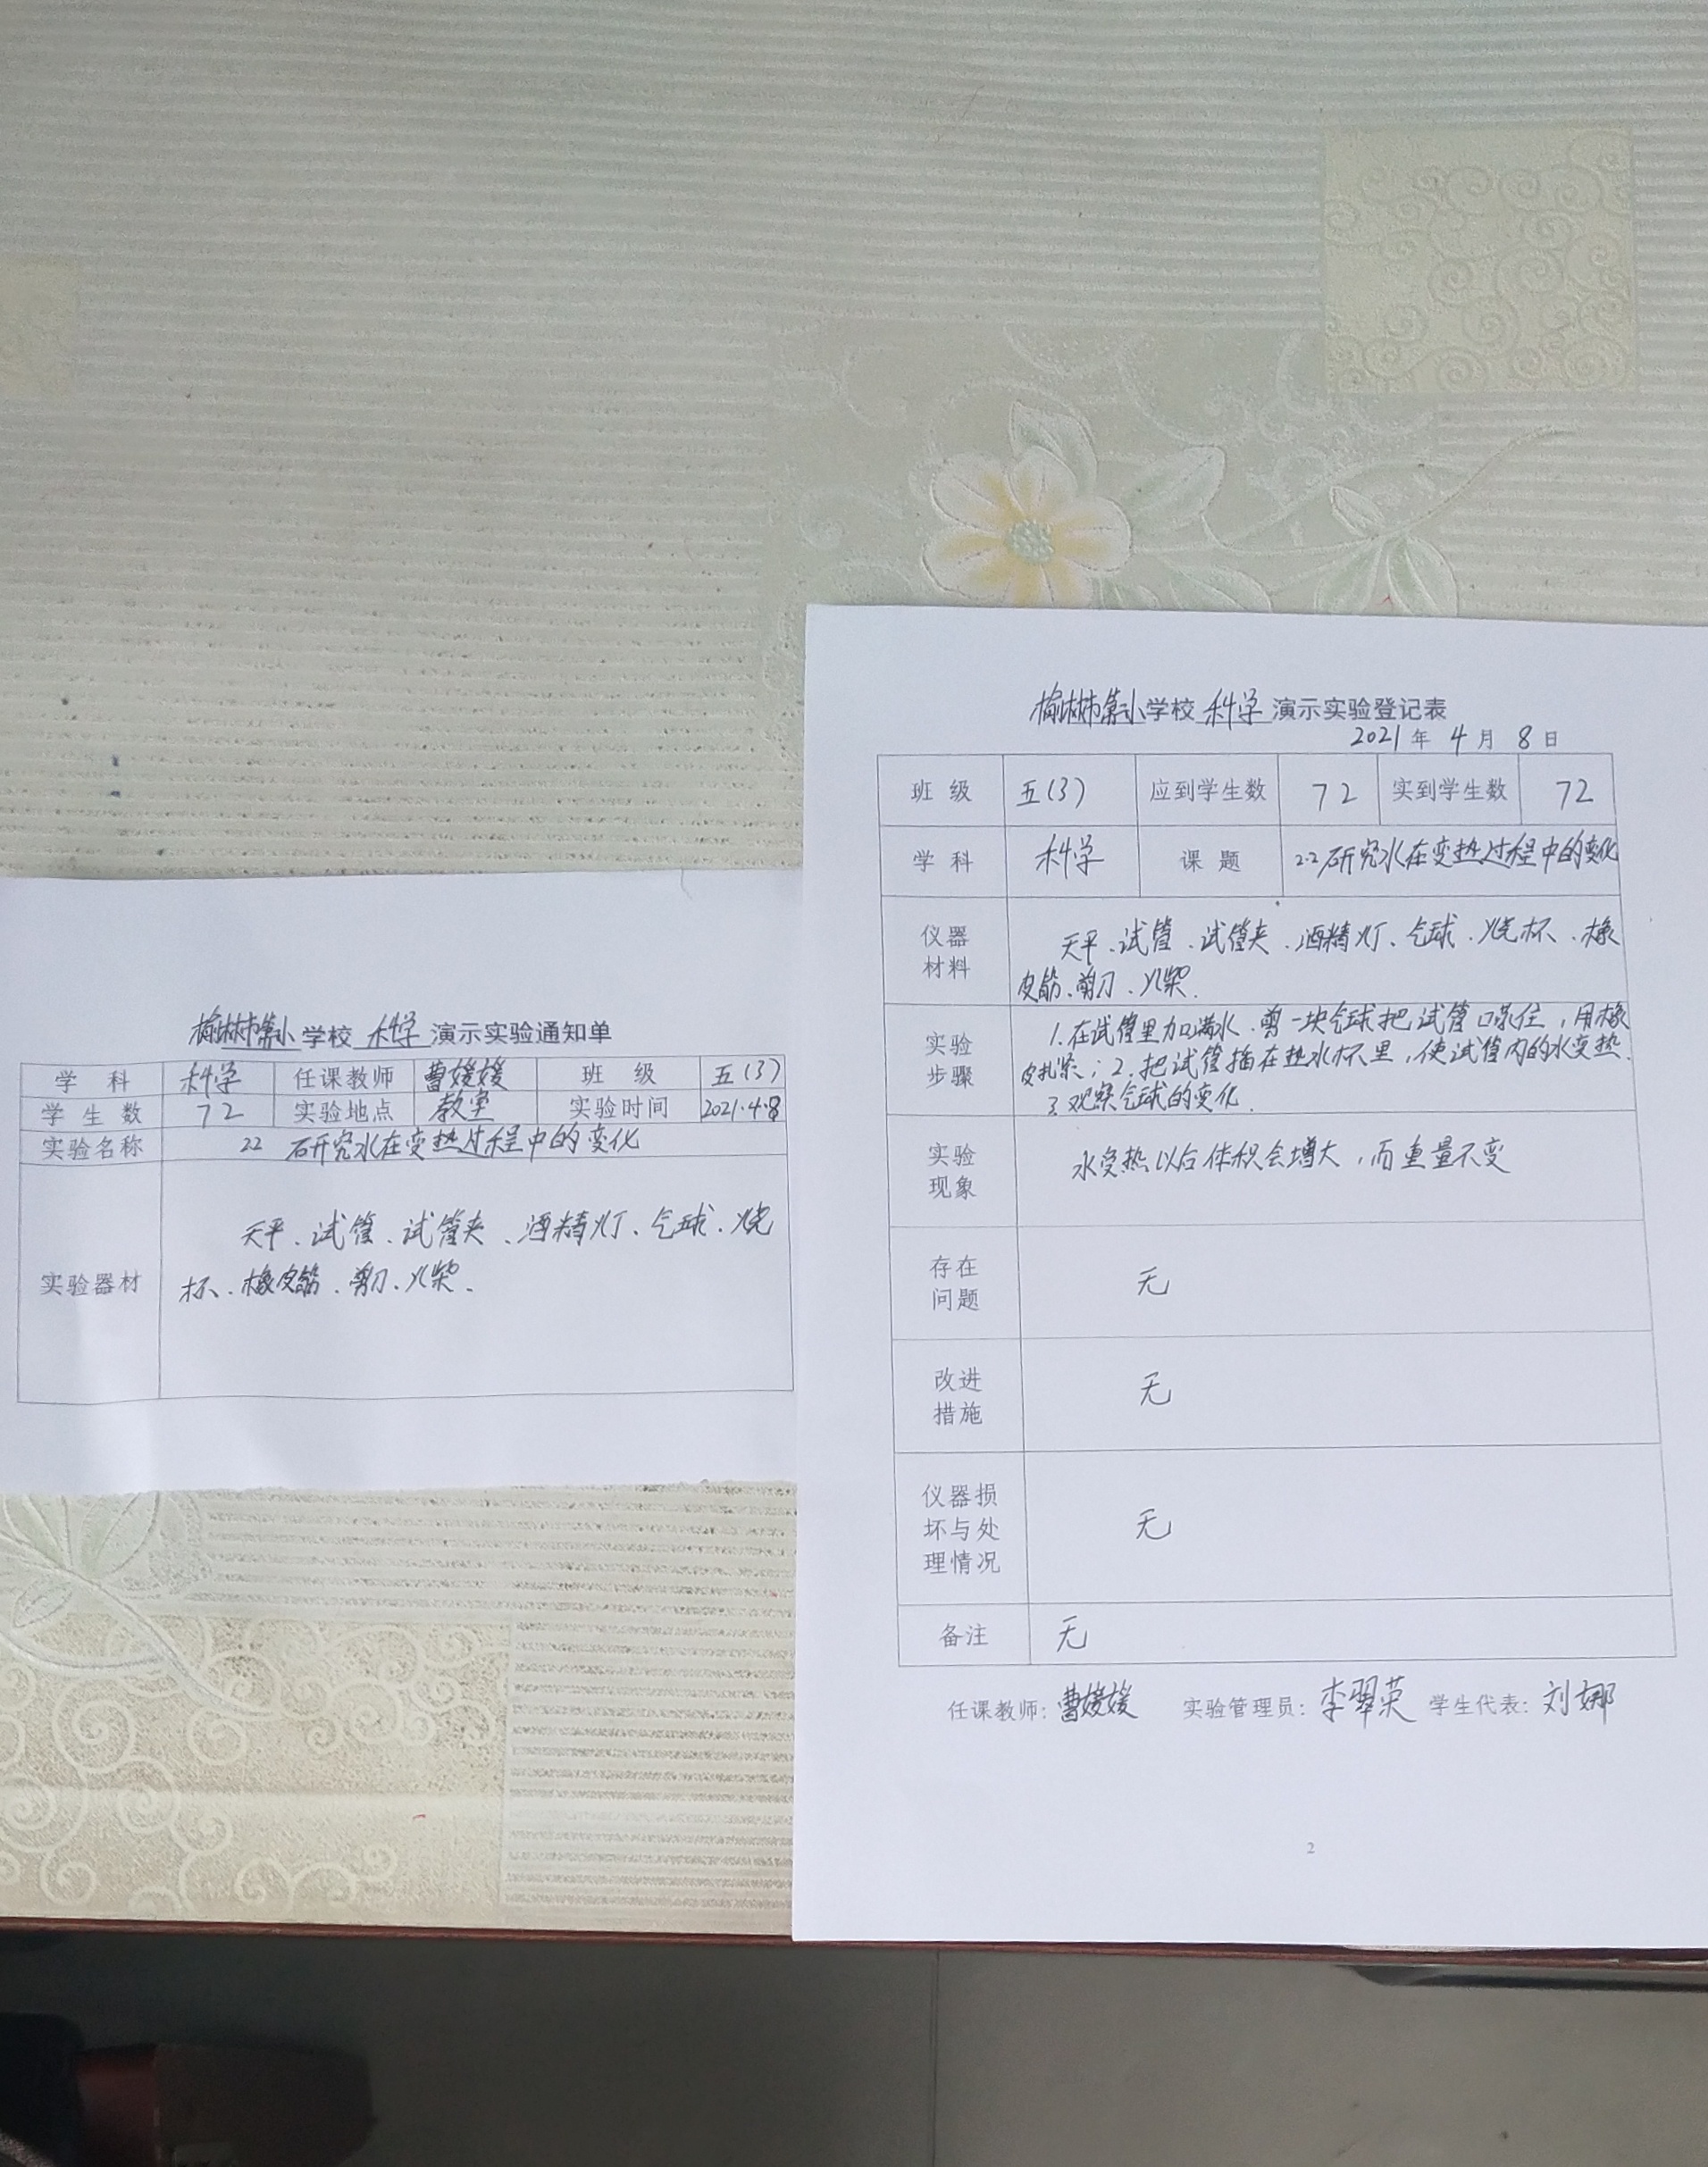 学校 科学 演示实验通知单
学 科 科学 任课教师 曹媛媛 班 级 五(3)
学 生 数 72 实验地点 教室 实验时间 2021.4.8
实验名称 22 研究水在变热过程中的变化
天平、试管、试管夹、酒精灯、气球、烧
实验器材
杯、橡皮筋、剪刀、火柴.
学校 科学 演示实验登记表
2021 年 4 月 8 日
班 级 五(3) 应到学生数 72 实到学生数 72
学 科 科学 课 题 2.2 研究水在变热过程中的变化
仪器
材料
天平、试管、试管夹、酒精灯、气球、烧杯、橡
皮筋、剪刀、火柴.
实验
步骤
1.在试管里加满水.剪一块气球把试管口蒙住,用橡
皮扎紧;2.把试管插在热水杯里,使试管内的水变热.
3.观察气球的变化.
实验
现象
水受热以后体积会增大,而重量不变
存在
问题
无
改进
措施
无
仪器损
坏与处
理情况
无
备注 无
任课教师:曹媛媛 实验管理员:李翠英 学生代表:刘娜
2